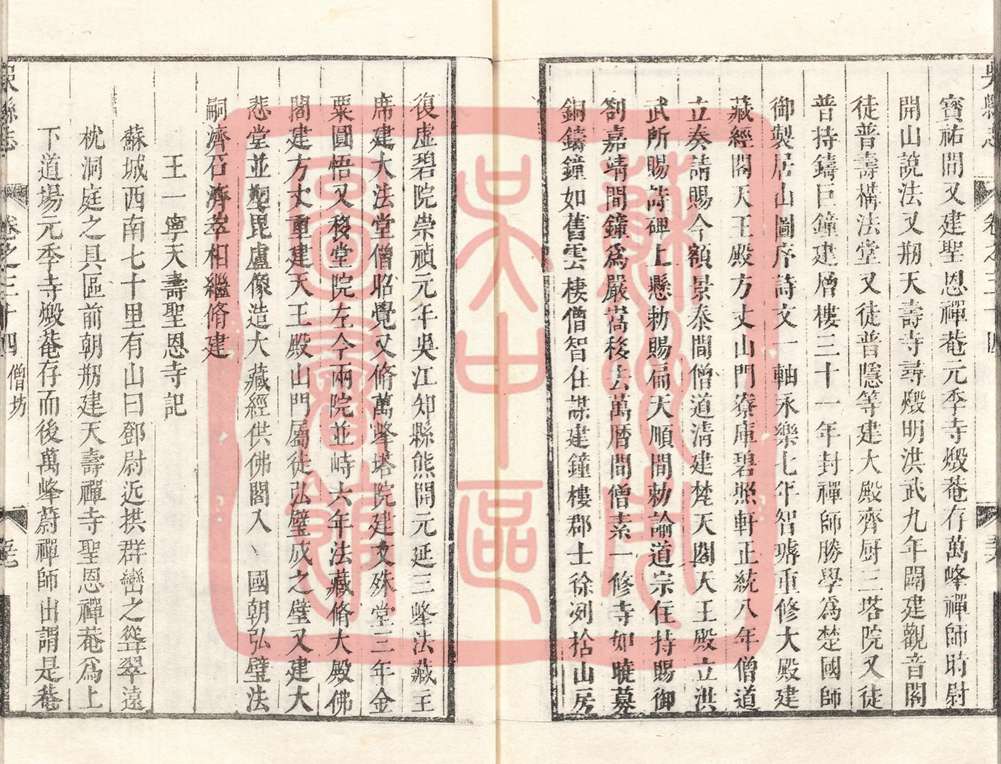 寶祐間又建聖恩禪菴元季寺燬菴存萬峰禪師時尉
開山說法又剏天壽寺尋燬明洪武九年閫建觀音閣
徒普壽構法堂又徒普隱等建大殿齊厨三塔院又徒
普持鑄巨鐘建層樓三十一年封禪師勝學為楚國師
御製居山圖序詩文一軸永樂七年智璹重修大殿建
藏經閣天王殿方丈山門寮庫碧照軒正統八年僧道
立奏請賜今額景泰間僧道清建梵天閣天王殿立洪
武所賜詩碑上懸勅賜扁天順間勅諭道宗住持賜御
劄嘉靖間鐘為嚴嵩移去萬曆間僧素一修寺如曉募
銅鑄鐘如舊雲棲僧智住謀建鐘樓郡士徐冽捨山房
吳縣志 卷之三十四
復虛碧院崇禎元年吳江知縣熊開元延三峰法藏主
席建大法堂僧昭覺又脩萬峰塔院建文殊堂三年金
粟圓悟又移堂院左今兩院並峙六年法藏脩大殿佛
閣建方丈重建天王殿山門屬徒弘璧成之璧又建大
悲堂並塑毘盧像造大藏經供佛閣入 國朝弘璧法
嗣濟石濟莑相繼脩建
王一寧天壽聖恩寺記
蘇城西南七十里有山曰鄧尉近拱群巒之聳翠遠
枕洞庭之具區前朝剏建天壽禪寺聖恩禪菴為上
下道場元季寺燬菴存而後萬峰蔚禪師出謂是菴
吳縣志 卷之三十四 僧坊
蘇州市
吳中區
圖書館